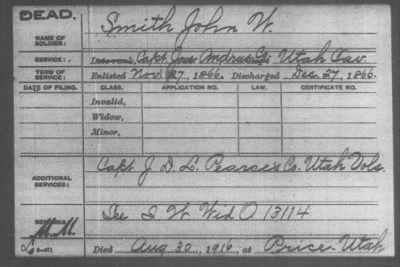 DEAD.
NAME OF SOLDIER: Smith John W.
SERVICE: Capt. Jas. Andrus Co. Utah Cav.
TERM OF SERVICE: Enlisted Nov. 27, 1866. Discharged Dec. 27, 1866.
DATE OF FILING. CLASS. APPLICATION NO. LAW. CERTIFICATE NO.
Invalid,
Widow,
Minor,
ADDITIONAL SERVICES: Capt. J. D. L. Pearce's Co. Utah Vols.
REMARKS: See I. W. Wid. O 13114
M.M.
Died Aug 30, 1916, at Price-Utah